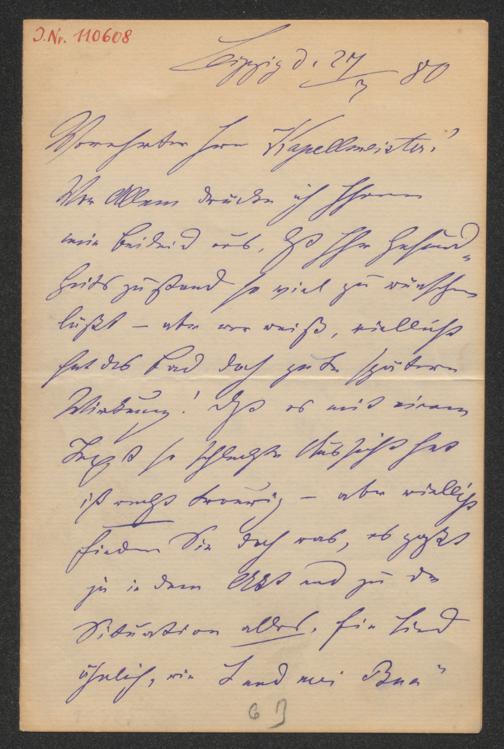 J.Nr. 110608
Leipzig d. 27/7 80
Verehrter Herr Kapellmeister!
Vor Allem drücke ich Ihnen
mein Beileid aus, daß Ihr Gesund-
heitszustand so viel zu wünschen
läßt – aber wer weiß, vielleicht
hat das Bad doch gute spätere
Wirkung! Daß es mit einem
Text so schlechte Aussicht hat
ist recht traurig – aber vielleicht
finden Sie doch was, es paßt
ja in dem Akt und zu der
Situation alles. Ein Lied
ähnlich, wie Land mei Bua"